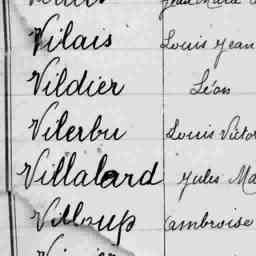 Vilais Louis Jean
Vildier Léon
Vilerbu Louis Victor
Villalard Jules Ma
Villoup Ambroise